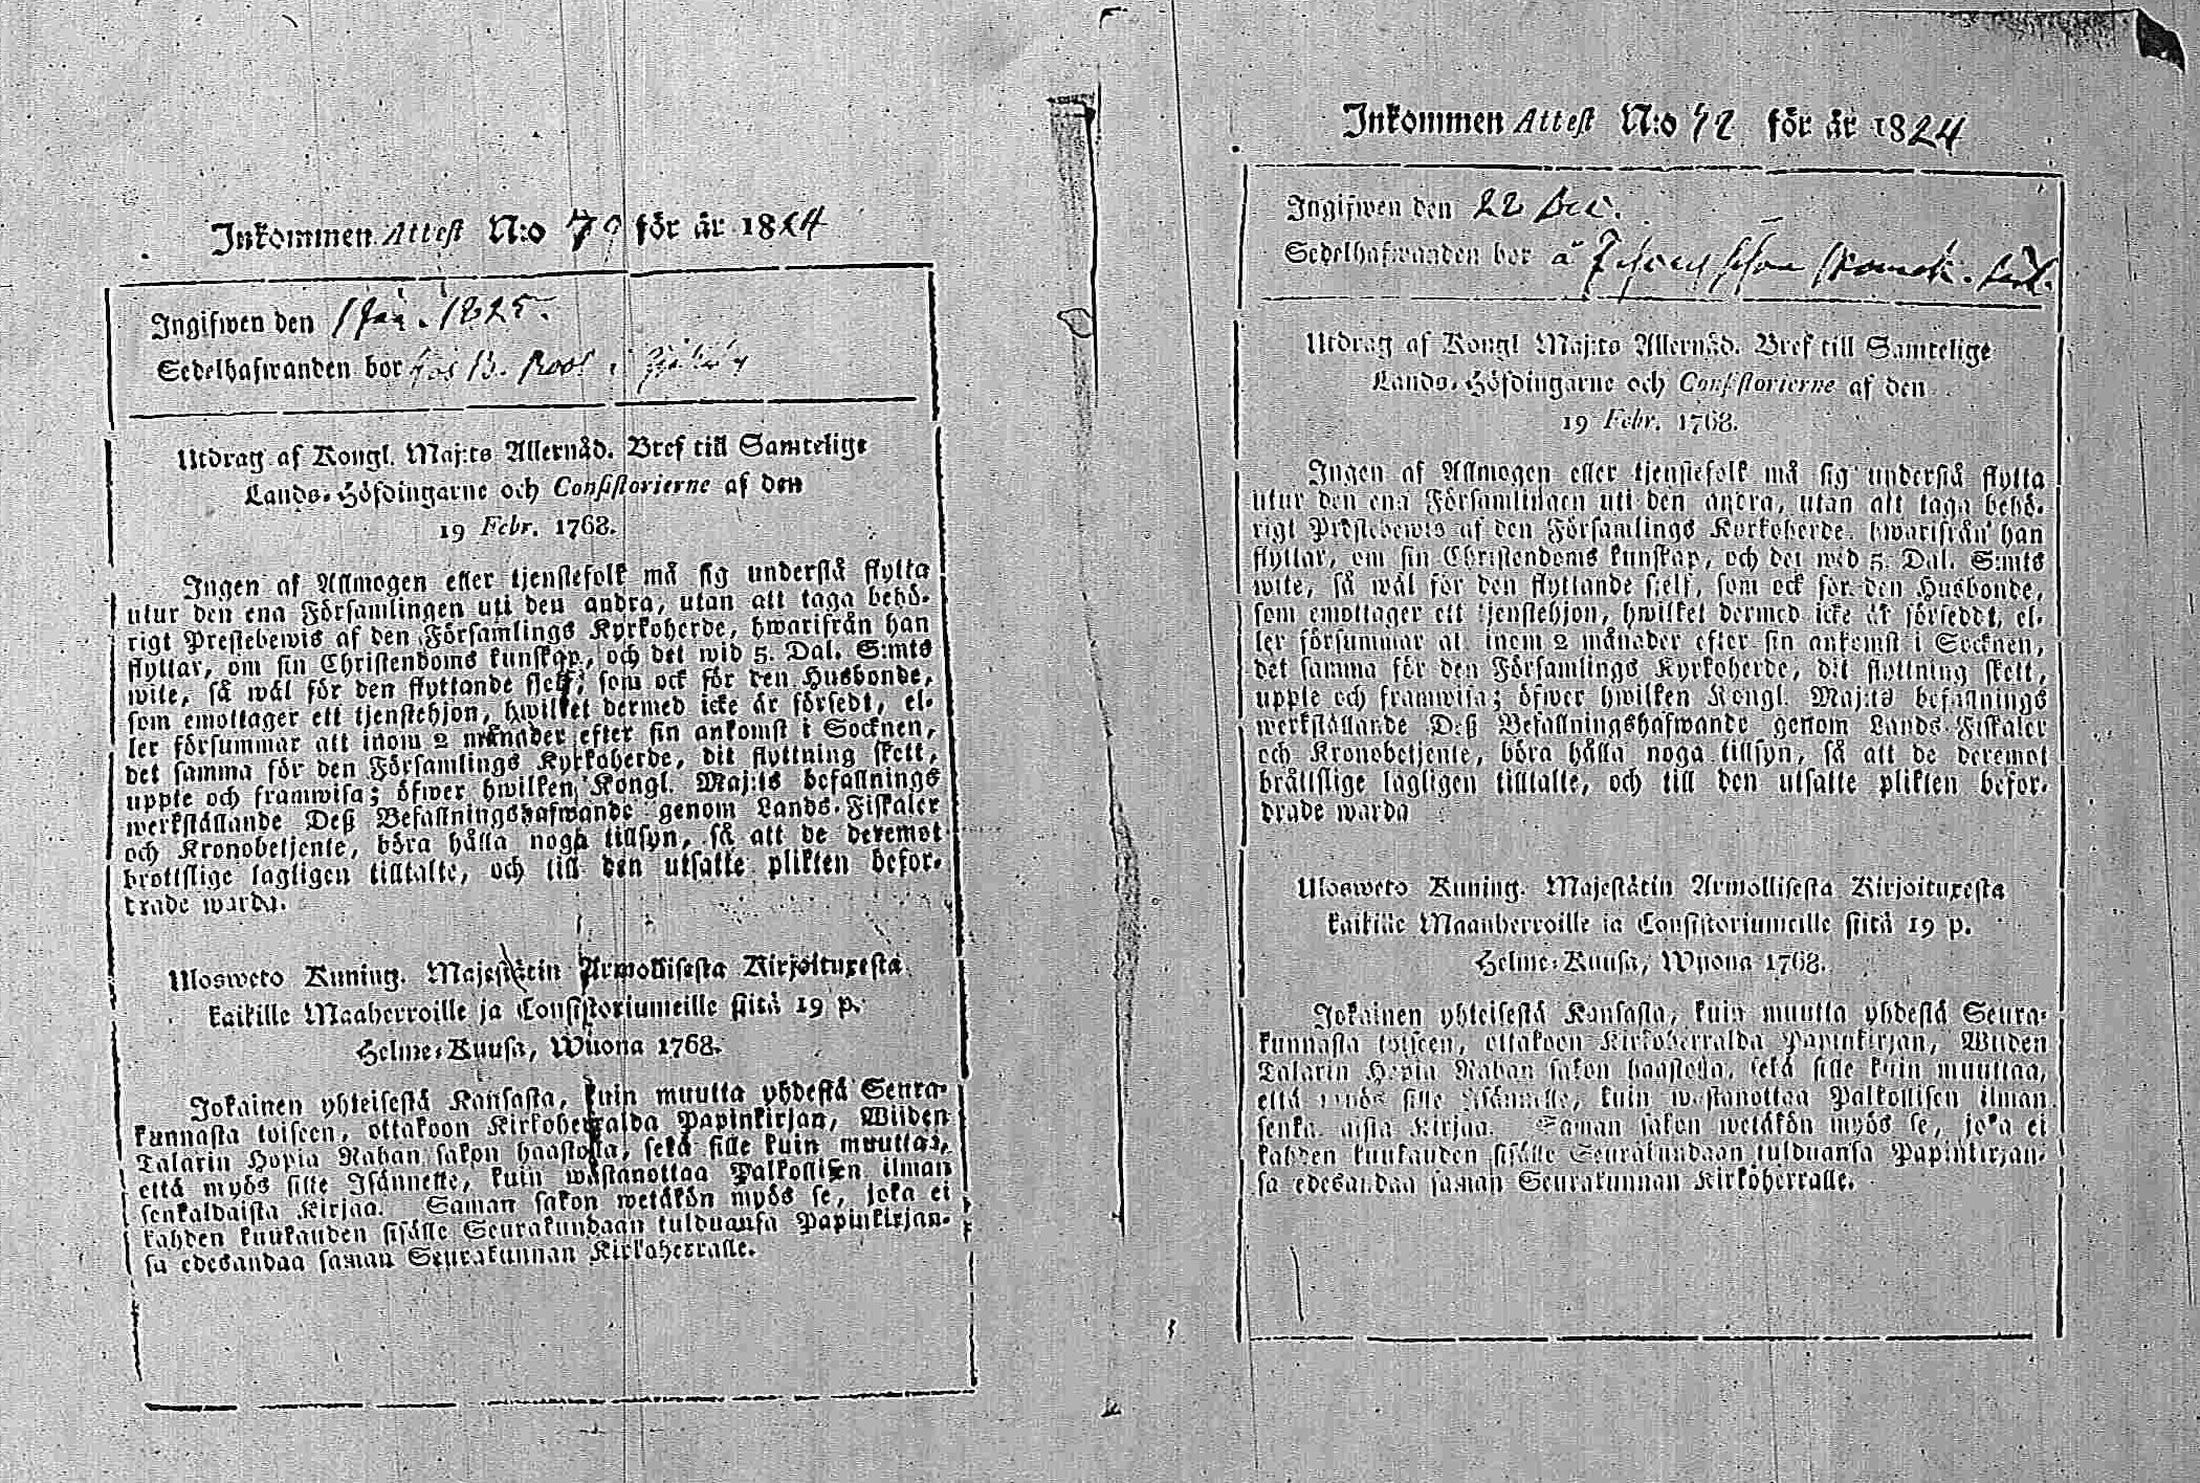 Inkommen Attest N:o 79 för år 1824
Ingifwen den 1 Jan. 1825.
Sedelhafwanden bor
Utdrag af Kongl. Maj:ts Allernåd. Bref till Samtelige
Lands-Höfdingarne och Consistorierne af den
19 Febr. 1768.
Ingen af Allmogen eller tjenstefolk må sig understå flytta
utur den ena Församlingen uti den andra, utan att taga behö-
rigt Prestebewis af den Församlings Kyrkoherde, hwarifrån han
flyttar, om sin Christendoms kunskap, och det wid 5. Dal. S:mts
wite, så wäl för den flyttande sjelf, som ock för den Husbonde,
som emottager ett tjenstehjon, hwilket dermed icke är försedt, el-
ler försummar att inom 2 månader efter sin ankomst i Socknen,
det samma för den Församlings Kyrkoherde, dit flyttning skett,
uppte och framwisa; öfwer hwilken Kongl. Maj:ts befallnings
werkställande Deß Befallningshafwande genom Lands-Fiskaler
och Kronobetjente, böra hålla noga tillsyn, så att de deremot
brottslige lagligen tilltalte, och till den utsatte plikten befor-
drade warda.
Ulosweto Kuning. Majestätin Armollisesta Kirjoituxesta
kaikille Maaherroille ja Consistoriumeille siitä 19 p.
Helme-Kuusa, Wuona 1768.
Jokainen yhteisestä Kansasta, kuin muutta yhdestä Seura-
kunnasta toiseen, ottakoon Kirkoherralda Papinkirjan, Wiiden
Talarin Hopia Rahan sakon haastolla, sekä sille kuin muuttaa,
että myös sille Isännelle, kuin wastanottaa Palkollisen ilman
senkaldaista Kirjaa. Saman sakon wetäkön myös se, joka ei
kahden kuukauden sisälle Seurakundaan tulduansa Papinkirjan-
sa edesandaa saman Seurakunnan Kirkoherralle.
Inkommen Attest N:o 72 för år 1824
Ingifwen den 22 Dec.
Sedelhafwanden bor å
Utdrag af Kongl Maj:ts Allernåd. Bref till Samtelige
Lands-Höfdingarne och Consistorierne af den
19 Febr. 1768.
Ingen af Allmogen eller tjenstefolk må sig understå flytta
utur den ena Församlingen uti den andra, utan att taga behö-
rigt Prestebewis af den Församlings Kyrkoherde, hwarifrån han
flyttar, om sin Christendoms kunskap, och det wid 5. Dal. S:mts
wite, så wäl för den flyttande sjelf, som ock för den Husbonde,
som emottager ett tjenstehjon, hwilket dermed icke är försedt, el-
ler försummar att inom 2 månader efter sin ankomst i Socknen,
det samma för den Församlings Kyrkoherde, dit flyttning skett,
uppte och framwisa; öfwer hwilken Kongl. Maj:ts befallnings
werkställande Deß Befallningshafwande genom Lands-Fiskaler
och Kronobetjente, böra hålla noga tillsyn, så att de deremot
bråttslige lagligen tilltalte, och till den utsatte plikten befor-
drade warda
Ulosweto Kuning. Majestätin Armollisesta Kirjoituxesta
kaikille Maanherroille ja Consistoriumeille siitä 19 p.
Helme-Kuusa, Wuona 1768.
Jokainen yhteisestä Kansasta, kuin muutta yhdestä Seura-
kunnasta toiseen, ottakoon Kirkoherralda Papinkirjan, Wiiden
Talarin Hopia Rahan sakon haastolla, sekä sille kuin muuttaa,
että myös sille Isännelle, kuin wastanottaa Palkollisen ilman
senkaldaista Kirjaa. Saman sakon wetäkön myös se, joka ei
kahden kuukauden sisälle Seurakundaan tulduansa Papinkirjan-
sa edesandaa saman Seurakunnan Kirkoherralle.